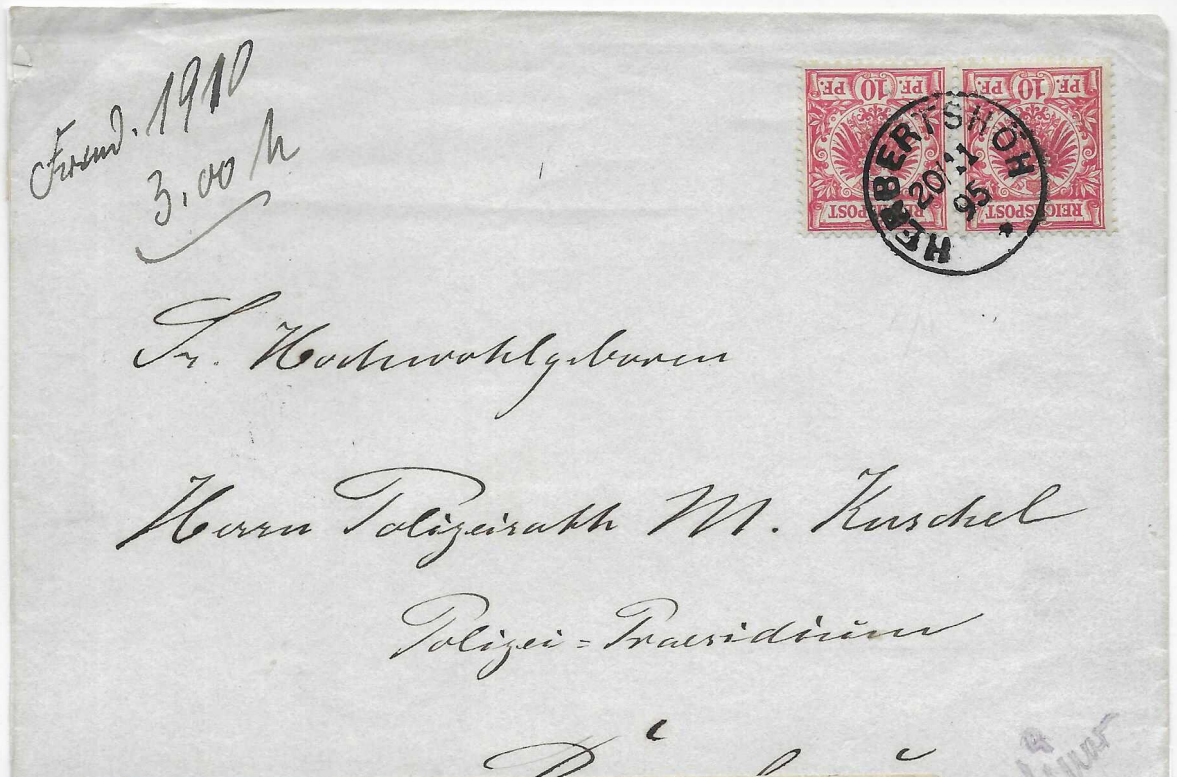 1910
3.00 M
10 PF. 10 PF.
REICHSPOST REICHSPOST
HERBERTSHÖH
20/11
95
Sr. Hochwohlgeboren
Herrn Polizeirath M. Kuschel
Polizei=Praesidium